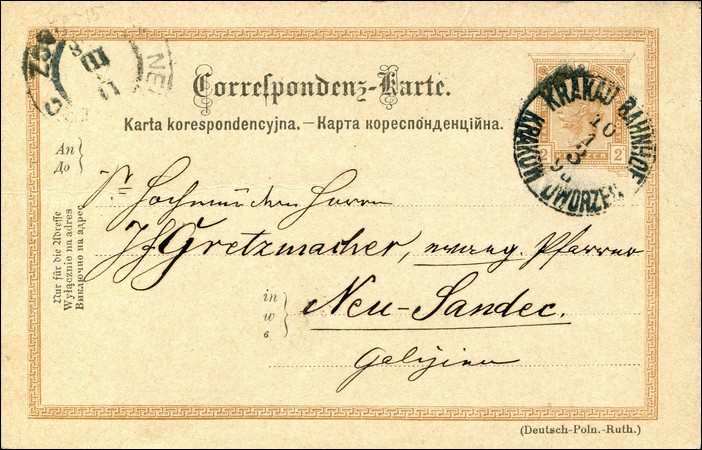 Correspondenz-Karte.
Karta korespondencyjna. — Карта кореспонденційна.
An
До
Sr Hochwürden Herrn
Gretzmacher, evang. Pfarrer
in
w
в
Neu-Sandec.
Galizien
Nur für die Adresse
Wyłącznie na adres
Виключно на адрес
2
2
KRAKAU BAHNHOF
KRAKÓW DWORZEC
10
3
NE
III
11
(Deutsch-Poln.-Ruth.)